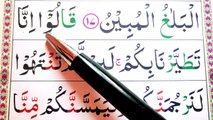 الْبَلٰغُ الْمُبِيْنُ ﴿١٧﴾ قَالُوْۤا اِنَّا
تَطَيَّرْنَا بِكُمْ ۚ لَىِٕنْ لَّمْ تَنْتَهُوْا
لَنَرْجُمَنَّكُمْ وَ لَيَمَسَّنَّكُمْ مِّنَّا